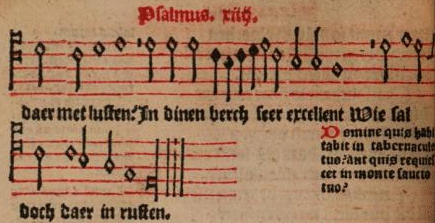 Psalmus. xiiij.
daer met lusten? In dinen berch seer excellent Wie sal
Domine quis habi
tabit in tabernaculo
tuo? aut quis requies
cet in monte sancto
tuo?
doch daer in rusten.